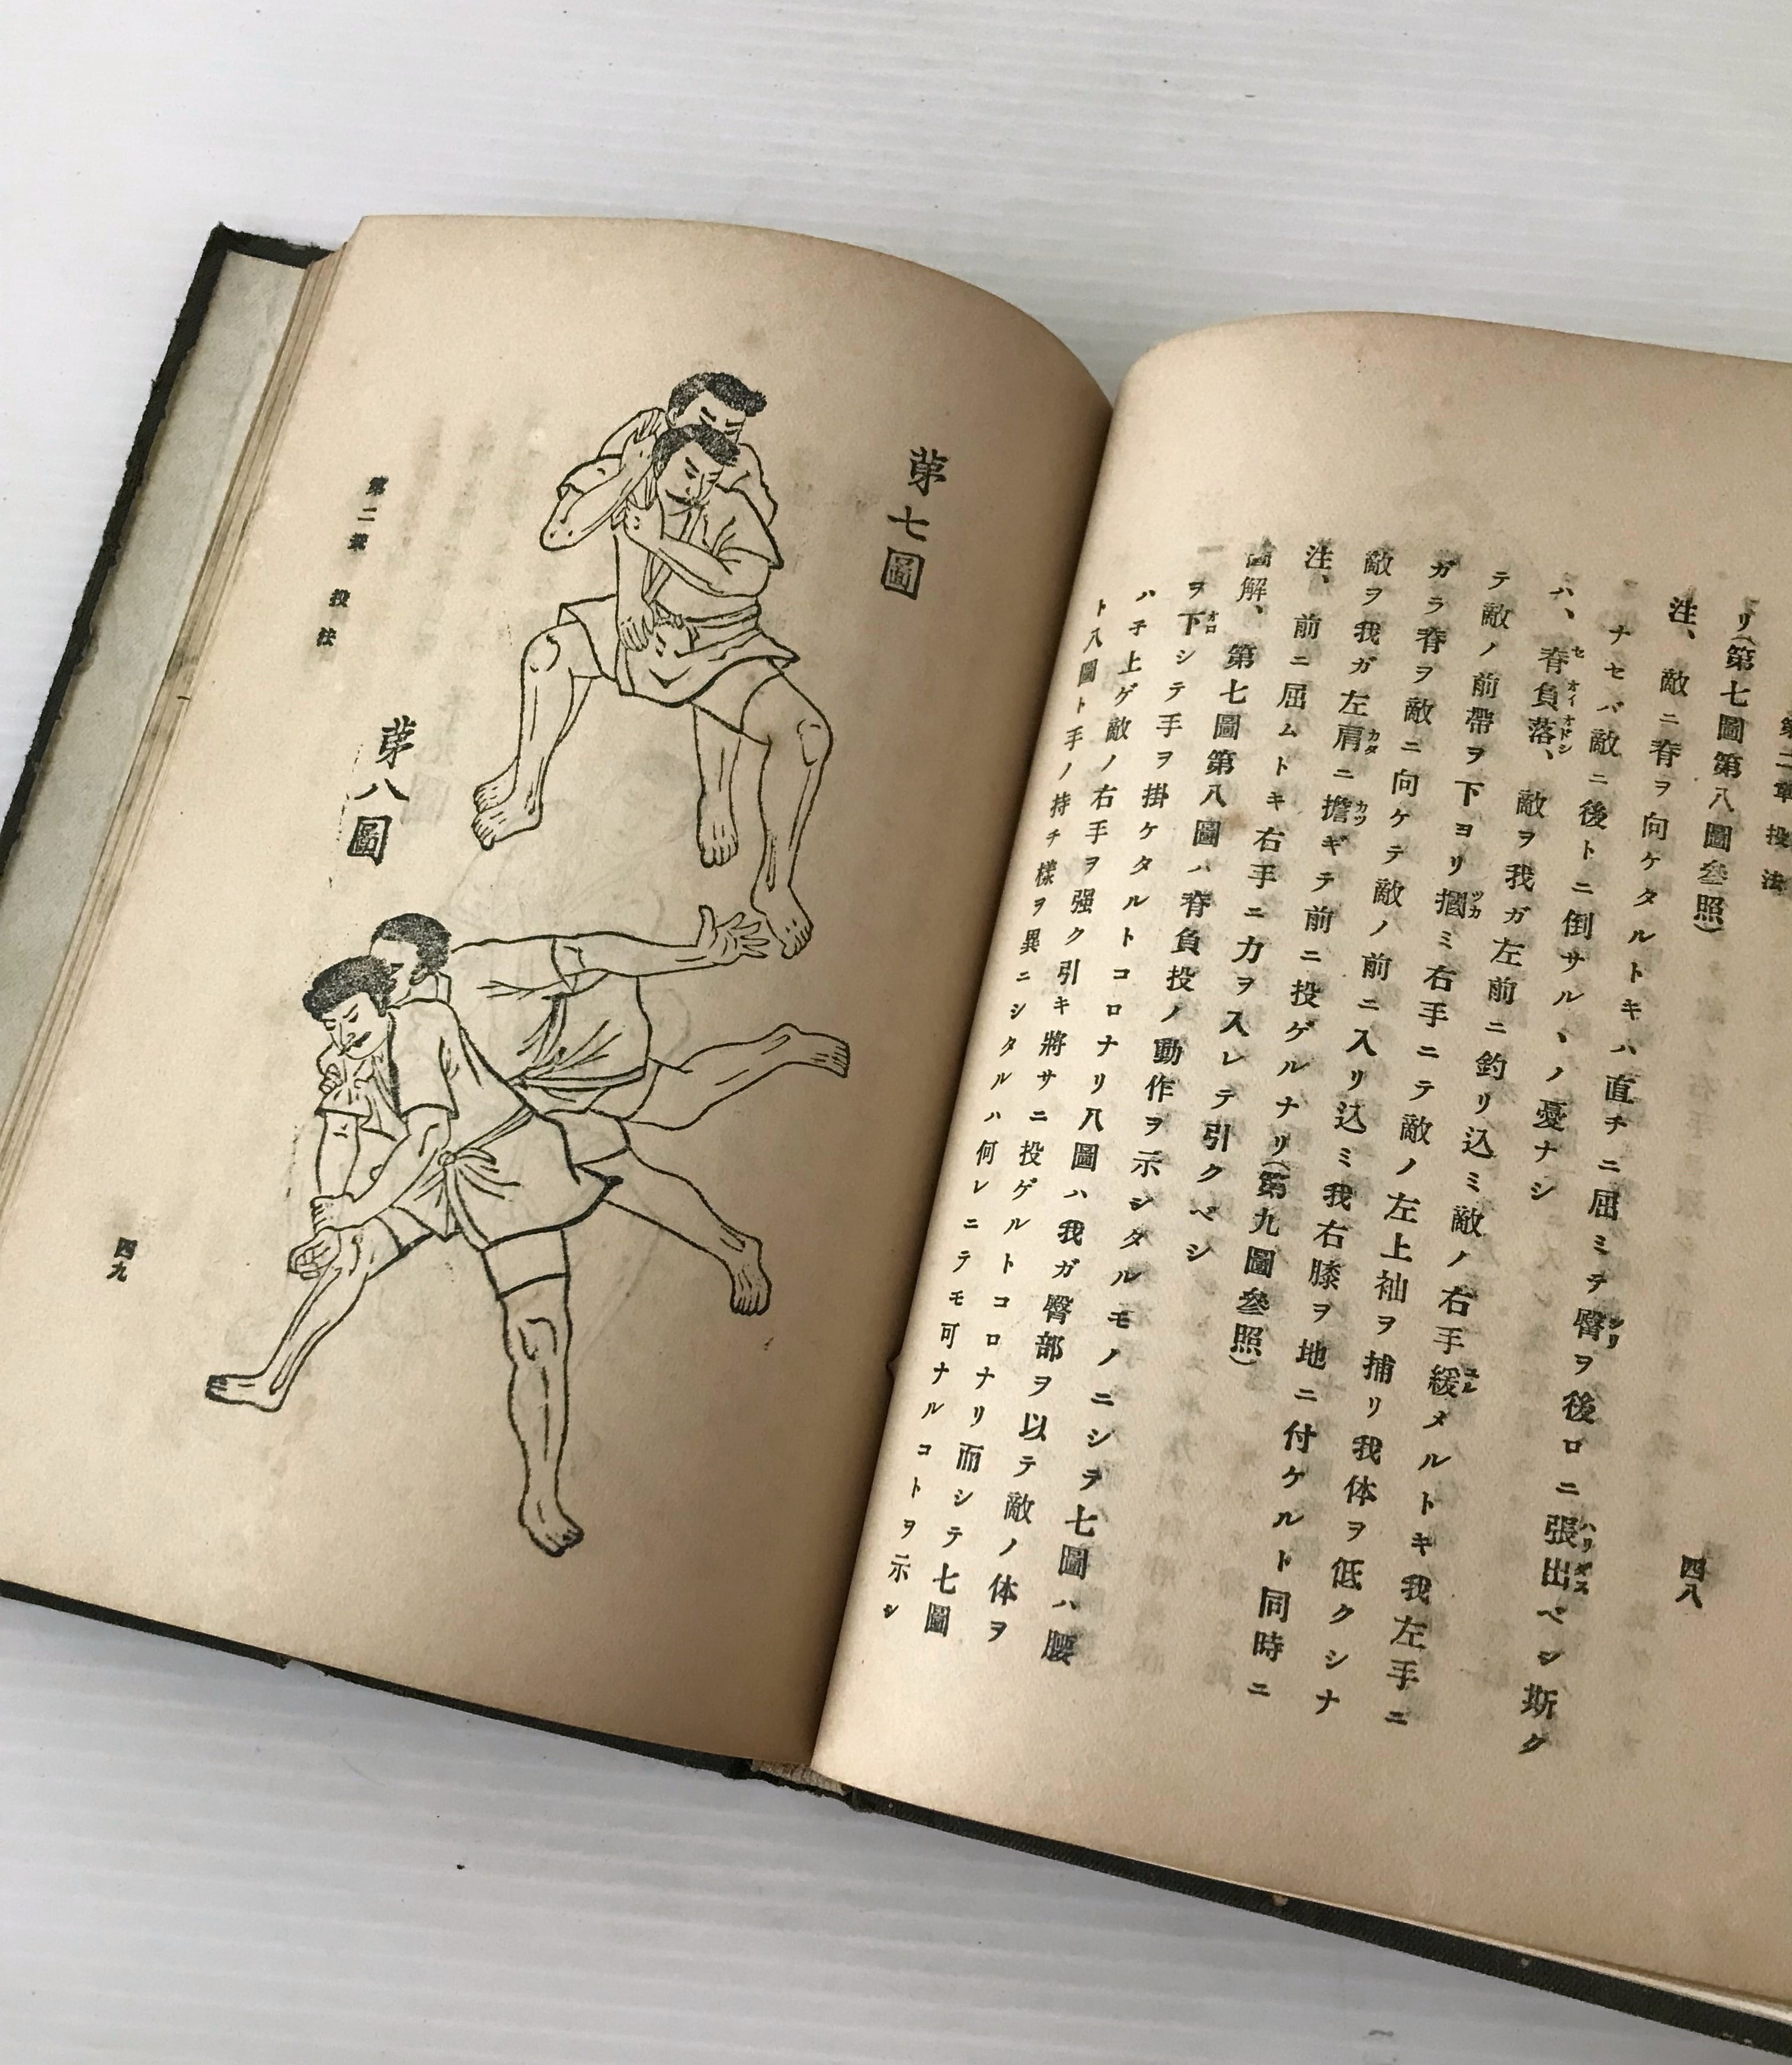 第二章 投法
四八
リ(第七圖第八圖參照)
注、敵ニ脊ヲ向ケタルトキハ直チニ屈ミテ臀ヲ後ロニ張出ベシ斯ク
ナセバ敵ニ後トニ倒サルヽノ憂ナシ
ハ、脊負落、敵ヲ我ガ左前ニ釣リ込ミ敵ノ右手緩メルトキ我左手ニ
テ敵ノ前帶ヲ下ヨリ摑ミ右手ニテ敵ノ左上袖ヲ捕リ我体ヲ低クシナ
ガラ脊ヲ敵ニ向ケテ敵ノ前ニ入リ込ミ我右膝ヲ地ニ付ケルト同時ニ
敵ヲ我ガ左肩ニ擔ギテ前ニ投ゲルナリ(第九圖參照)
注、前ニ屈ムトキ右手ニ力ヲ入レテ引クベシ
圖解、第七圖第八圖ハ脊負投ノ動作ヲ示シタルモノニシテ七圖ハ腰
ヲ下シテ手ヲ掛ケタルトコロナリ八圖ハ我ガ臀部ヲ以テ敵ノ体ヲ
ハ子上ゲ敵ノ右手ヲ强ク引キ將サニ投ゲルトコロナリ而シテ七圖
ト八圖ト手ノ持チ樣ヲ異ニシタルハ何レニテモ可ナルコトヲ示シ
第七圖
第八圖
第二章 投法
四九